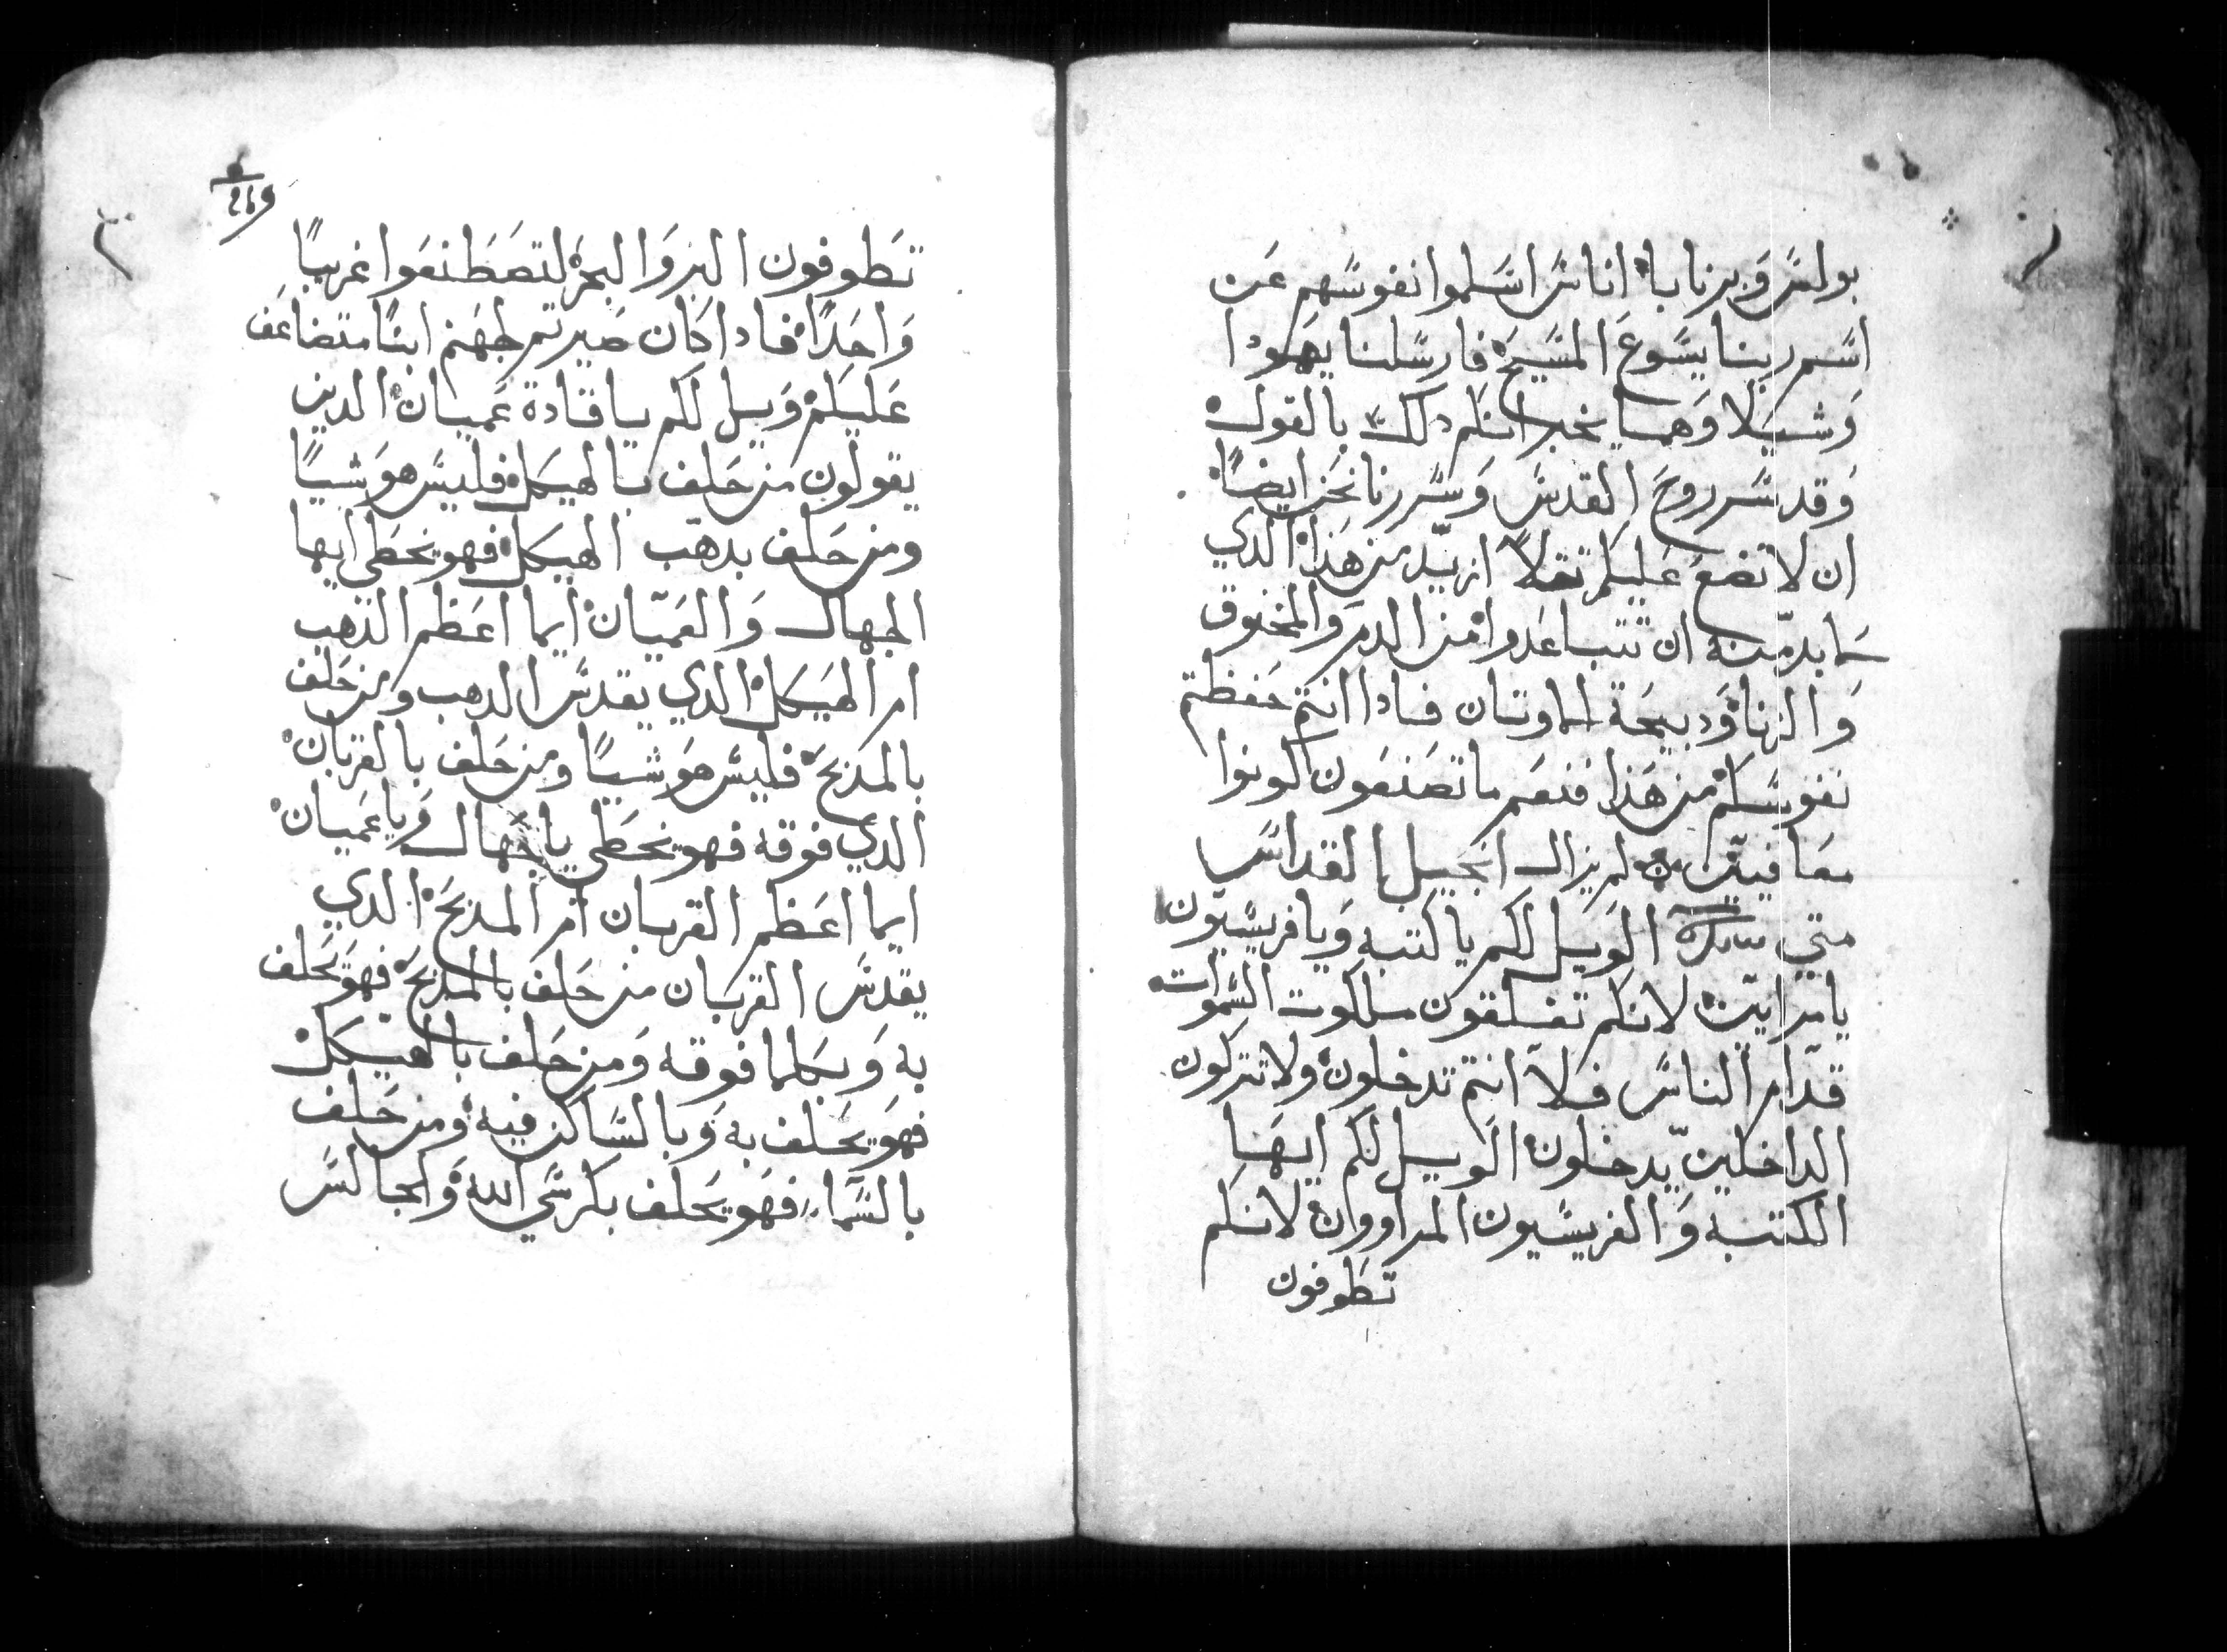 بولس وبرنابا اناس اسلموا نفوسهم عن
اسم ربنا يسوع المسيح فارسلنا يهودا
وشيلا وهما يخبرانكم دلك بالقول
وقد سر روح القدس وسررنا نحن ايضًا
ان لا نضع عليكم تقلاً ازيد من هذا الدي
لا بد منه ان تتباعدوا من الدم والمخنوق
والزنا ودبيحة الاوتان فادا انتم حفظتم
نفوسكم من هذا فنعم ما تصنعون كونوا
معافيين لم يزال انجيل القداس
متي الويل لكم يا كتبه ويا فريسيون
يا مرايين لانكم تغلقون ملكوت السموات
قدام الناس فلا انتم تدخلون ولا تتركون
الداخلين يدخلون الويل لكم ايها
الكتبه والفريسيون المراوون لانكم
تطوفون
269
تطوفون البر والبحر لتصطنعوا غريبًا
واحدًا فادا كان صيرتم لجهنم ابنًا متضاعف
عليكم ويل لكم يا قادة عميان الدين
يقولون من حلف بالهيكل فليس هو شيًا
ومن حلف بدهب الهيكل فهو يخطي ايها
الجهال والعميان ايما اعظم الدهب
ام الهيكل الدي يقدس الدهب ومن حلف
بالمدبح فليس هو شيًا ومن حلف بالقربان
الدي فوقه فهو يخطي يا جهال ويا عميان
ايما اعظم القربان ام المدبح الدي
يقدس القربان من حلف بالمدبح فهو يحلف
به وبكلما فوقه ومن حلف بالهيكل
فهو يحلف به وبالساكن فيه ومن حلف
بالسماء فهو يحلف بكرسي الله والجالس